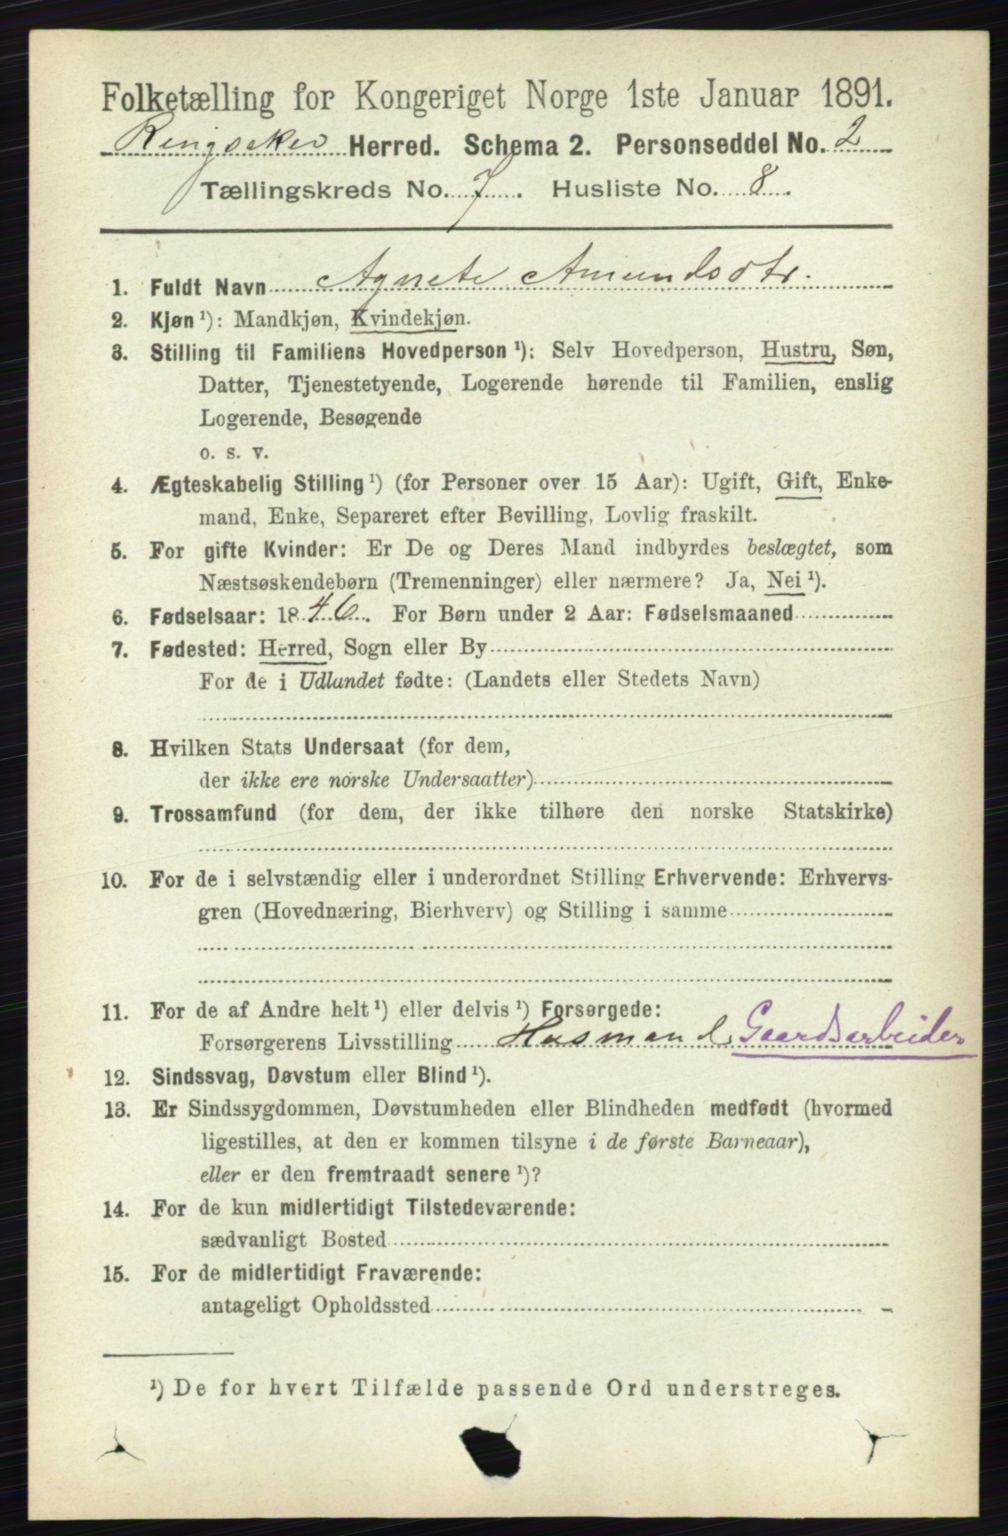 Folketælling for Kongeriget Norge 1ste Januar 1891.
Ringsaker Herred. Schema 2. Personseddel No. 2
Tællingskreds No. 7. Husliste No. 8.
1. Fuldt Navn Agnete Amundsdtr.
2. Kjøn ¹): Mandkjøn, Kvindekjøn.
3. Stilling til Familiens Hovedperson ¹): Selv Hovedperson, Hustru, Søn,
Datter, Tjenestetyende, Logerende hørende til Familien, enslig
Logerende, Besøgende
o. s. v.
4. Ægteskabelig Stilling ¹) (for Personer over 15 Aar): Ugift, Gift, Enke-
mand, Enke, Separeret efter Bevilling, Lovlig fraskilt.
5. For gifte Kvinder: Er De og Deres Mand indbyrdes beslægtet, som
Næstsøskendebørn (Tremenninger) eller nærmere? Ja, Nei ¹).
6. Fødselsaar: 1846. For Børn under 2 Aar: Fødselsmaaned
7. Fødested: Herred, Sogn eller By
For de i Udlandet fødte: (Landets eller Stedets Navn)
8. Hvilken Stats Undersaat (for dem,
der ikke ere norske Undersaatter)
9. Trossamfund (for dem, der ikke tilhøre den norske Statskirke)
10. For de i selvstændig eller i underordnet Stilling Erhvervende: Erhvervs-
gren (Hovednæring, Bierhverv) og Stilling i samme
11. For de af Andre helt ¹) eller delvis ¹) Forsørgede:
Forsørgerens Livsstilling Husmand, Gaardsarbeider
12. Sindssvag, Døvstum eller Blind ¹).
13. Er Sindssygdommen, Døvstumheden eller Blindheden medfødt (hvormed
ligestilles, at den er kommen tilsyne i de første Barneaar),
eller er den fremtraadt senere ¹)?
14. For de kun midlertidigt Tilstedeværende:
sædvanligt Bosted
15. For de midlertidigt Fraværende:
antageligt Opholdssted
¹) De for hvert Tilfælde passende Ord understreges.